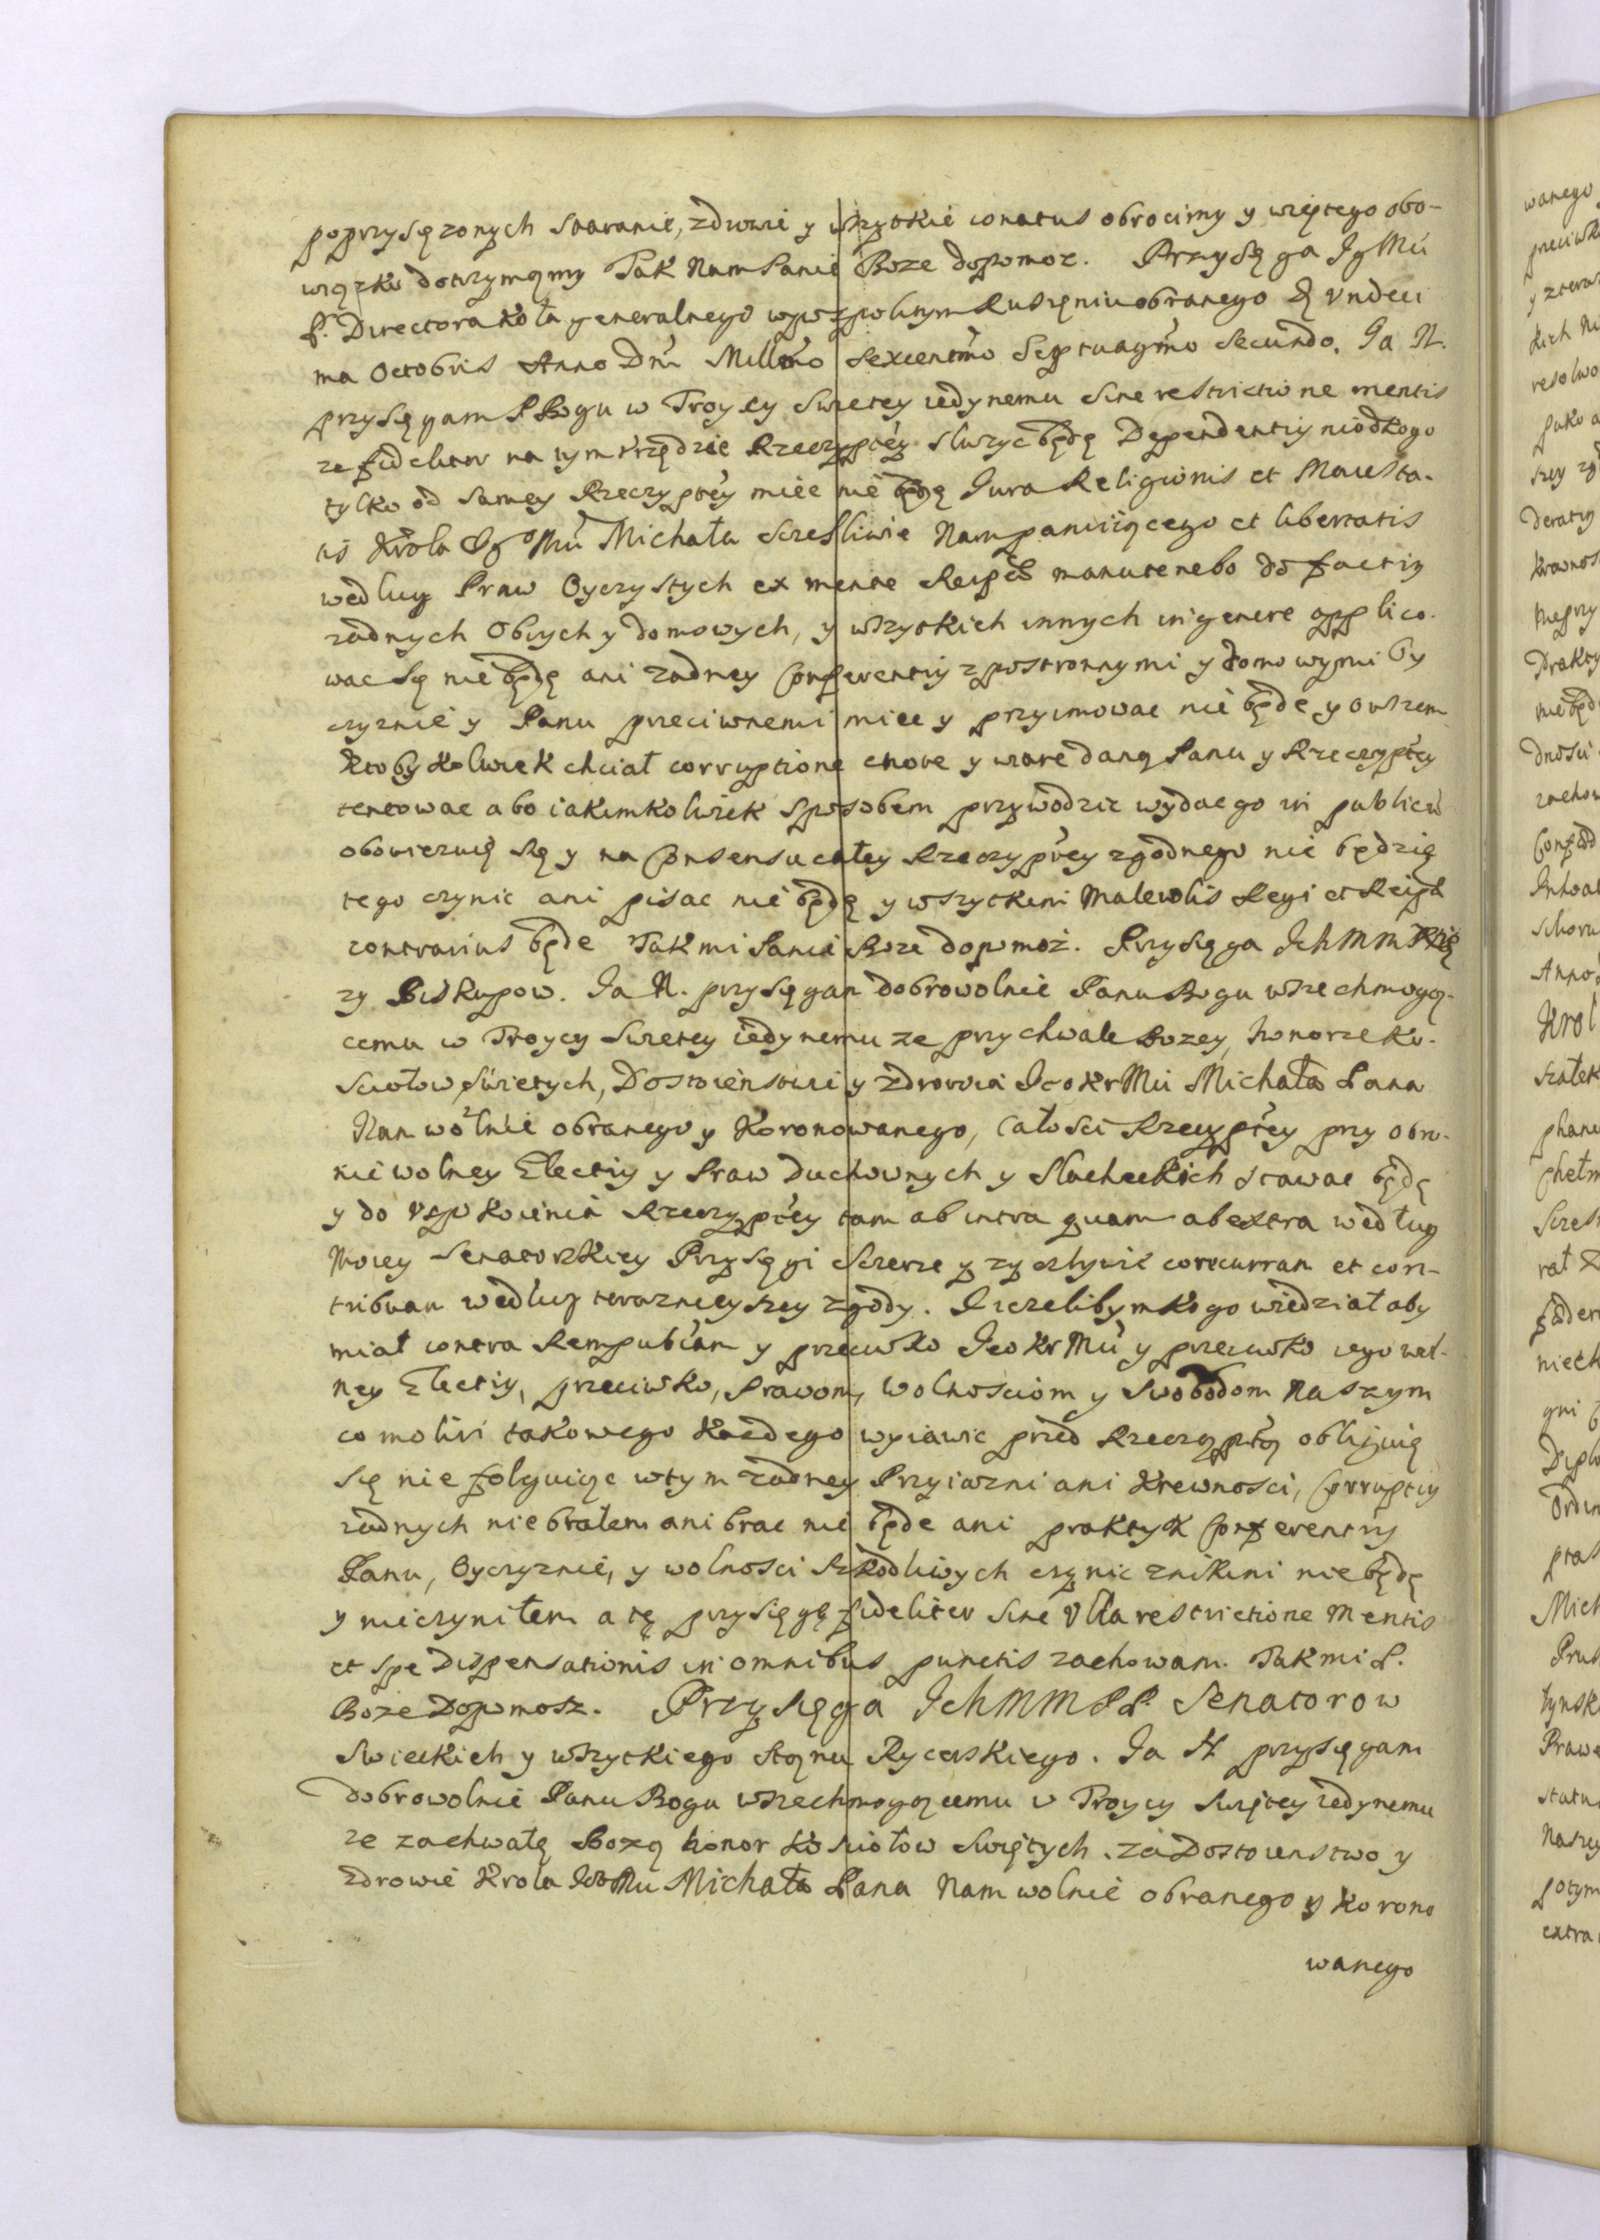 poprzysięzonych staranie, zdrowie y wszytkie conatus obrocimy y więtego obo-
wiązku dotrzymąmy Tak Nam Panie Boze dopomoz. Przysięga Jg Mći
P. Directora Koła generalnego wpospolitym Ruszęniu obranego D Vndeci
ma Octobris Anno Dni Millmo Sexcentmo Septuagmo Secundo. Ja N.
przysięgam P Bogu w Troycy Swietey iedynemu sine restrictione mentis
ze fideliter na tym vrzędzie Rzeczyptey sluzyc będę Dependentiy niodkogo
tylko od samey Rzeczyptey miec nie będę Jura Religionis et Maiesta-
tis Krola Jgo Mći Michała Sczesliwie Nam panuiącego et libertatis
wedlug Praw Oyczystych ex mente Reipcæ manutenebo do factiy
zadnych Obcych y domowych, y wszytkich innych in genere applico-
wac Się nie będę ani zadney Conferentiy z postronnymi y domowymi Oy
czyznie y Panu przeciwnemi miec y przyimowac nie będe y owszem
Ktoby kolwiek chciał corruptione cnote y wiare daną Panu y Rzeczyptey
tentowac abo iakimkolwiek sposobem przywodzic wydac go in publicum
obowięzuię Się y na Consensu całey Rzeczyptey zgodnego nie będzię
tego czynic ani pisac nie będę y wszytkimi Malevolis Regi et Reipcæ
contrarius będe Tak mi Panie Boze dopomoz. Przysięga Jch MM Xię
zy Biskupow. Ja N. przysięgam dobrowolnie Panu Bogu wszechmogą-
cemu w Troycy Swietey iedynemu ze przy chwale Bozey, honorze Ko-
sciołow swietych, Dostoienstwie y zdrowia Jeo Kr Mći Michała Pana
Nam wolnie obranego y Koronowanego, Całosci Rzeczyptey przy obro-
nie wolney Electiy y Praw Duchownych y Slacheckich stawac będę
y do vspokoienia Rzeczyptey tam ab intra quam ab extra według
Moiey Senatorskiey Przysięgi sczerze y zyczliwie concurram et con-
tribuam wedlug teraznieyszey zgody. Jiezelibym kogo wiedział aby
miał contra Rempublcam y przeciwko Jeo Kr Mći y przeciwko iego wol-
ney Electiy, przeciwko, Prawom, Wolnosciom y Swobodom Naszym
co moliri takowego kazdego wyiawic przed Rzecząptą obliguię
Się nie folguiąc wtym zadney Przyiazni ani Krewnosci, Corruptiy
zadnych nie brałem ani brac nie będe ani praktyk Conferentiy
Panu, Oyczyznie, y wolnosci szkodliwych czynic znikim nie będę
y nieczyniłem a tę przysięgę fideliter sine Vlla restrictione Mentis
et spe Dispensationis in omnibus punctis zachowam. Tak mi P.
Boze Dopomosz. Przysięga Jch MM PP. Senatorow
Swieckich y wszytkiego stąnu Rycerskiego. Ja N przysięgam
dobrowolnie Panu Bogu wszechmogącemu w Troycy Swiętey iedynemu
ze zachwałę Bozą honor Kosciołow Swiętych. za Dostoienstwo y
zdrowie Krola Jeo Mći Michała Pana Nam wolnie obranego y Korono
wanego